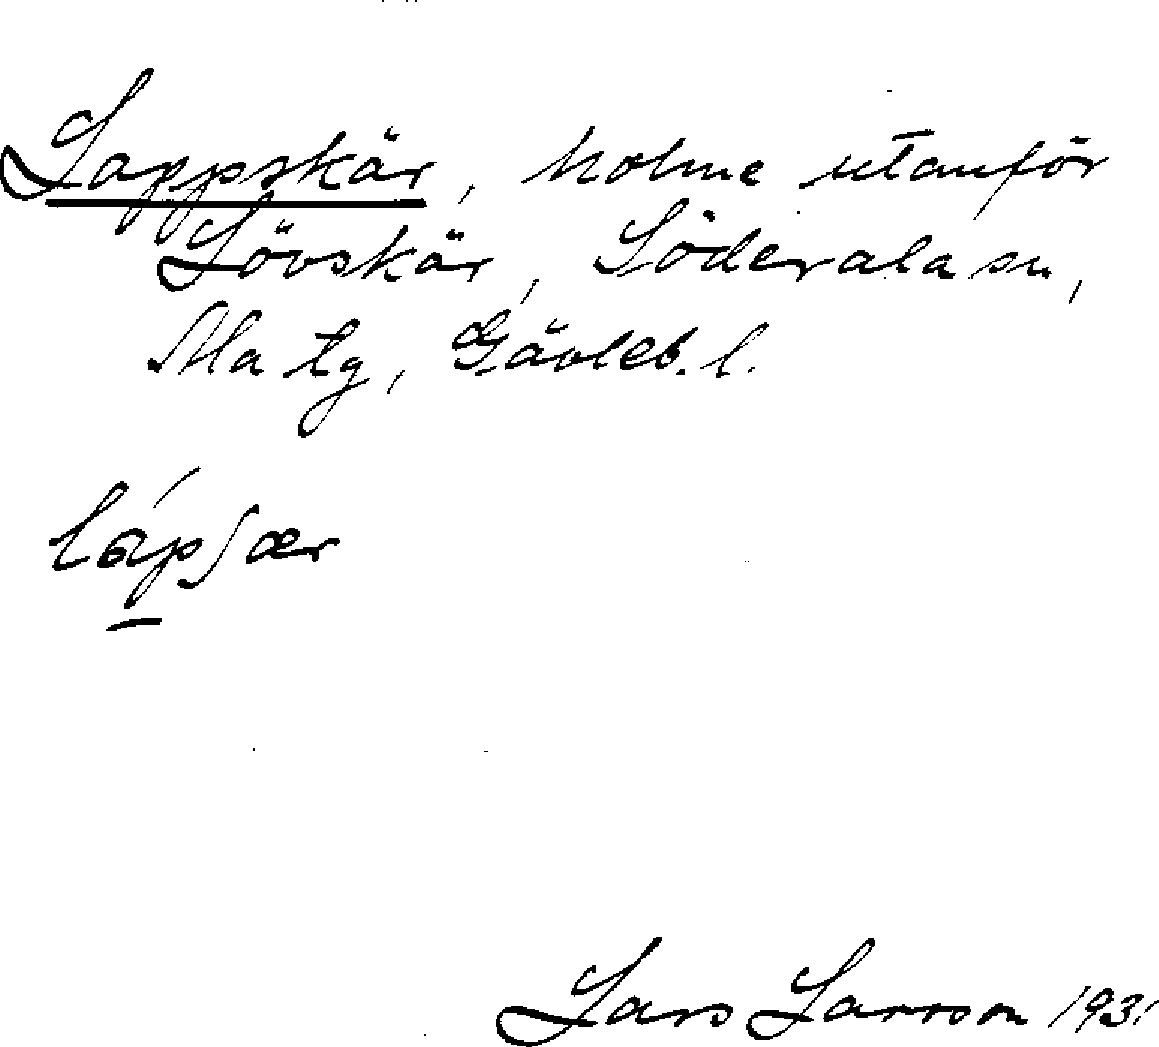 Lappskär, holme utanför
Lövskär, Söderala sn,
Ala tg, Gävleb. l.
Lars Larsson 1931